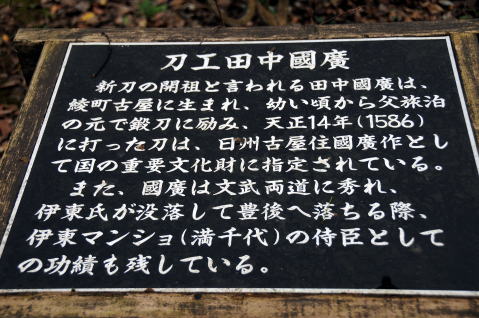 刀工田中國廣
新刀の開祖と言われる田中國廣は、
綾町古屋に生まれ、幼い頃から父旅泊
の元で鍛刀に励み、天正14年(1586)
に打った刀は、日州古屋住國廣作とし
て国の重要文化財に指定されている。
また、國廣は文武両道に秀れ、
伊東氏が没落して豊後へ落ちる際、
伊東マンショ(満千代)の侍臣として
の功績も残している。